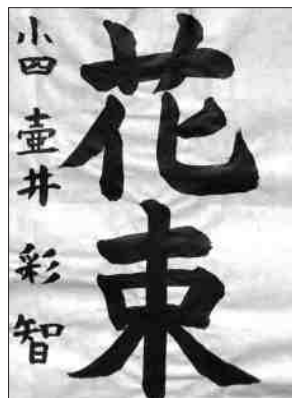 花束
小四 壷井 彩智